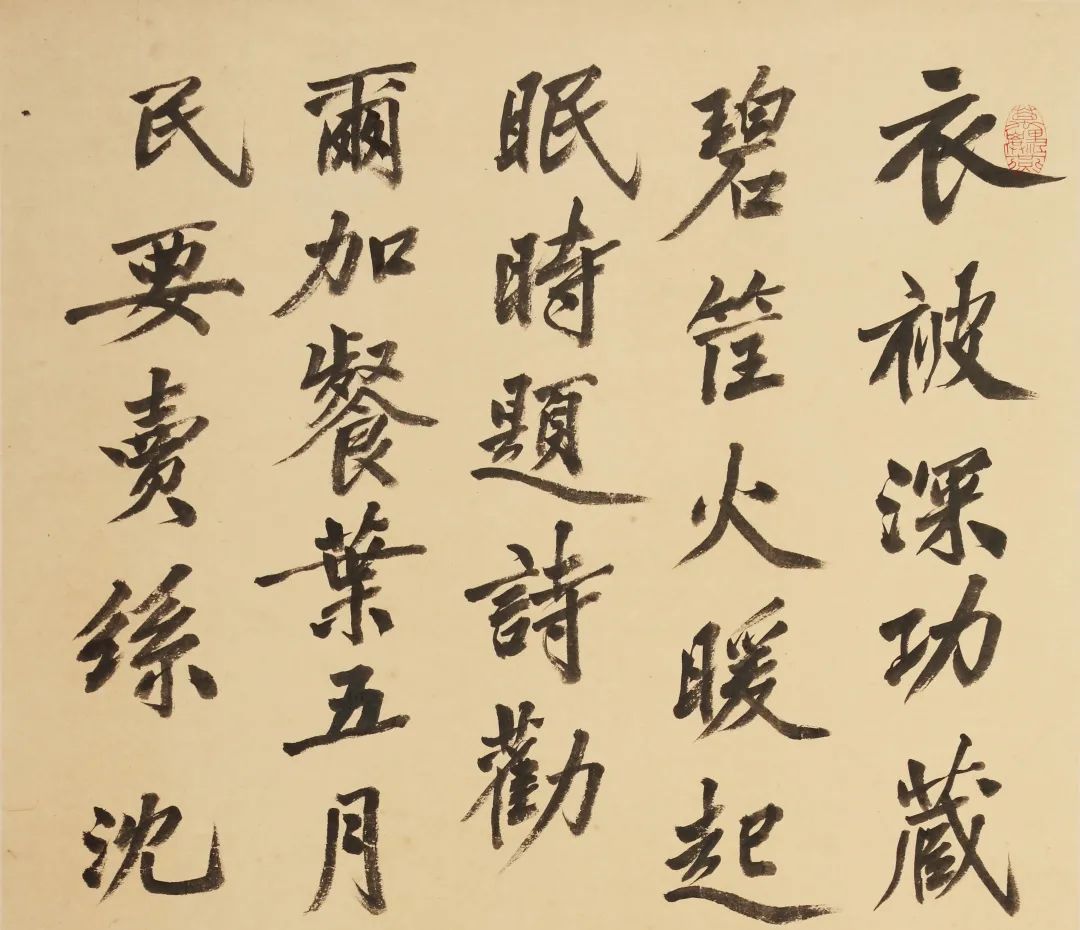 衣被深功藏
碧筐火暖起
眠時題詩勸
爾加餐葉五月
民要賣絲沈